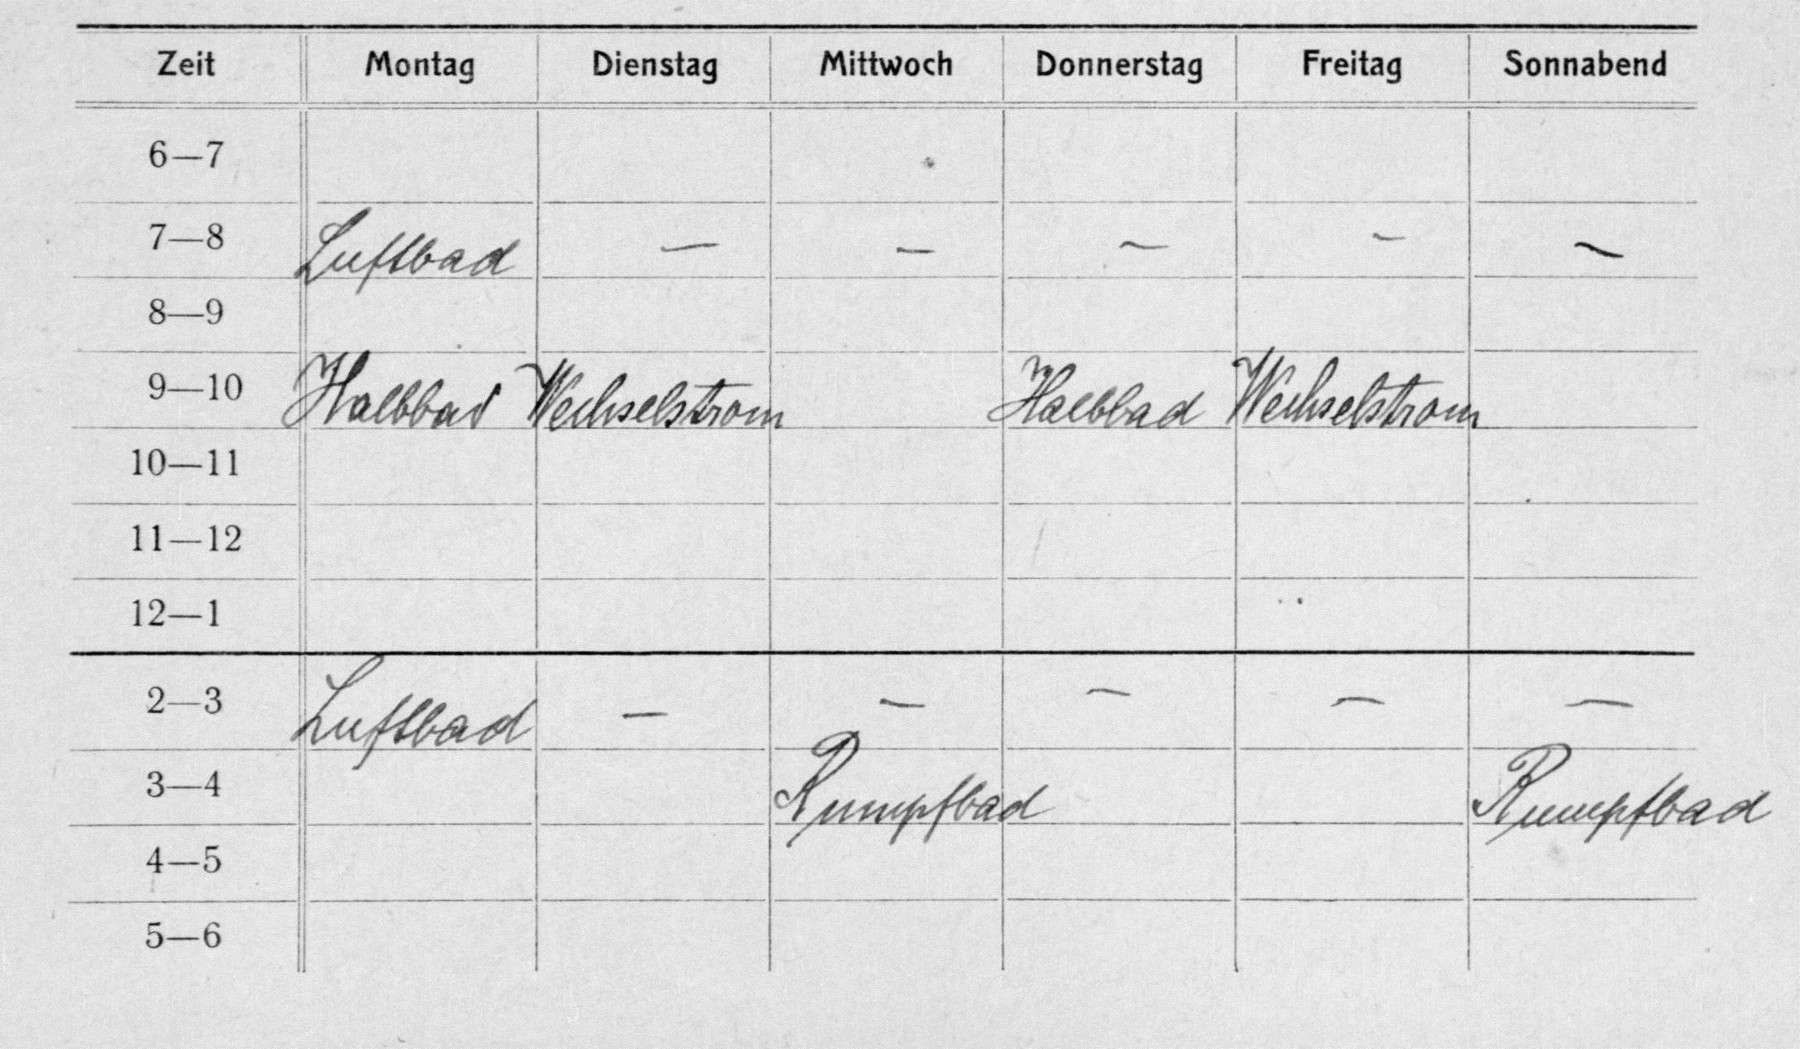 Zeit Montag Dienstag Mittwoch Donnerstag Freitag Sonnabend
6—7
7—8 Luftbad — — — — —
8—9
9—10 Halbbad Wechselstrom Halbbad Wechselstrom
10—11
11—12
12—1
2—3 Luftbad — — — — —
3—4 Rumpfbad Rumpfbad
4—5
5—6